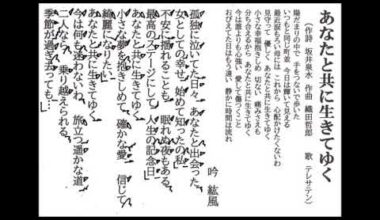 あなたと共に生きてゆく
(作詩 坂井泉水 作曲 織田哲郎 歌 テレサテン)
陽だまりの中で 手をつないで歩いた
いつもと同じ町並 今日は輝いて見える
最近涙もろい 母には これから心配かけたくないわ
見守って 優しく あなたと共に生きてゆく
小さな幸福抱きしめ 切ない 痛みさえも
分ち合えるから あなたと共に生きてゆく
今までより心強い 愛して傷つくこと
おびえてた日はもう遠い 静かに時間は流れ
吟 紘風
孤独に泣いてた日々 あなたと出会った
女としての幸せ 始めて知ったの私
不安に揺れることも 眠れぬ夜もある
最高のステージにして 人生の記念日
あなたと共に生きてゆく
小さな夢を抱きしめて 確かな愛 信じて
綺麗になりたい
あなたと共に生きてゆく
今は何も迷わないわ 旅立つ遥かな道
二人なら 乗り越えられる
季節が過ぎ去っても…